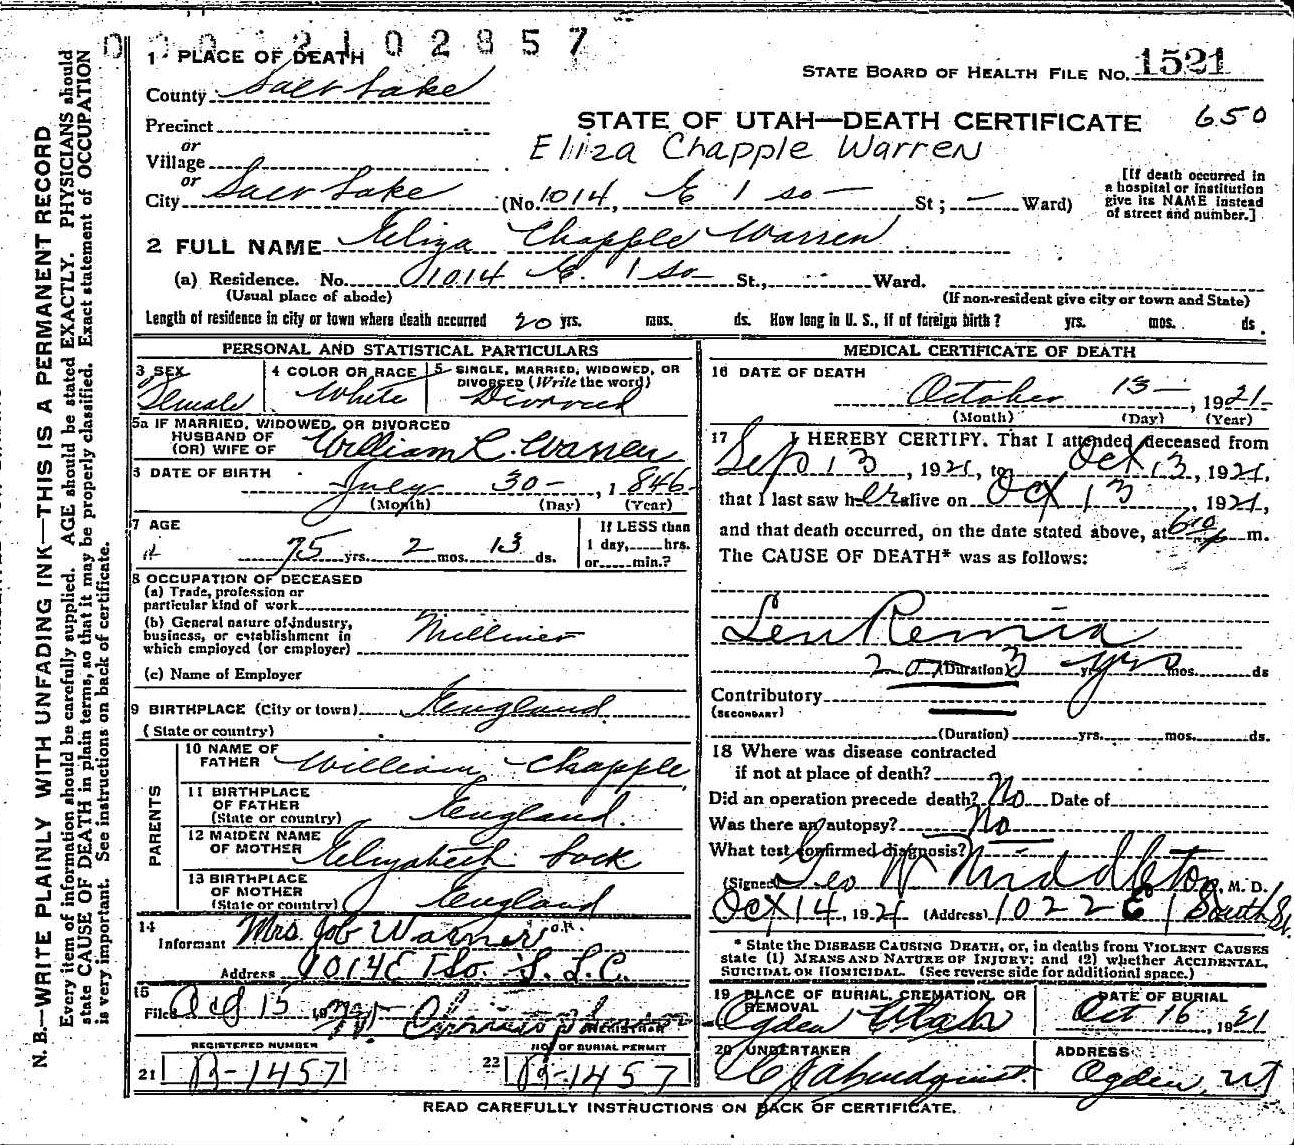 0002102857
1 PLACE OF DEATH
STATE BOARD OF HEALTH FILE NO. 1521
County Salt Lake
STATE OF UTAH—DEATH CERTIFICATE 650
Precinct
or
Eliza Chapple Warren
Village
or
City Salt Lake (No. 1014, E 1 So — St; — Ward)
[If death occurred in a hospital or institution give its NAME instead of street and number.]
2 FULL NAME Eliza Chapple Warren
(a) Residence. No. 1014 E. 1 So St., Ward.
(Usual place of abode) (If non-resident give city or town and State)
Length of residence in city or town where death occurred 20 yrs. mos. ds. How long in U. S., if of foreign birth? yrs. mos. ds.
PERSONAL AND STATISTICAL PARTICULARS
3 SEX Female
4 COLOR OR RACE White
5 SINGLE, MARRIED, WIDOWED, OR DIVORCED (Write the word) Divorced
5a IF MARRIED, WIDOWED, OR DIVORCED
HUSBAND OF
(OR) WIFE OF William C. Warren
6 DATE OF BIRTH July 30 — , 1846
(Month) (Day) (Year)
7 AGE 75 yrs. 2 mos. 13 ds.
If LESS than 1 day, hrs. or min.?
8 OCCUPATION OF DECEASED
(a) Trade, profession or particular kind of work
(b) General nature of industry, business, or establishment in which employed (or employer) Milliner
(c) Name of Employer
9 BIRTHPLACE (City or town) England
(State or country)
PARENTS
10 NAME OF FATHER William Chapple
11 BIRTHPLACE OF FATHER (State or country) England.
12 MAIDEN NAME OF MOTHER Elizabeth Sock
13 BIRTHPLACE OF MOTHER (State or country) England
14 Informant Mrs. Job Warner O.K.
Address 1014 E 1 So. S. L. C.
15 Filed Oct 15 19
REGISTRAR
REGISTERED NUMBER NO. OF BURIAL PERMIT
21 B-1457 22 B-1457
MEDICAL CERTIFICATE OF DEATH
16 DATE OF DEATH October 13 — , 1921
(Month) (Day) (Year)
17 I HEREBY CERTIFY. That I attended deceased from
Sep 13, 1921, to Oct 13, 1921,
that I last saw her alive on Oct 13, 1921,
and that death occurred, on the date stated above, at 6 m.
The CAUSE OF DEATH* was as follows:
Leukemia
2 or 3 yrs (Duration) yrs. mos. ds
Contributory
(SECONDARY)
(Duration) yrs. mos. ds.
18 Where was disease contracted
if not at place of death?
Did an operation precede death? No Date of
Was there an autopsy? No
What test confirmed diagnosis? —
(Signed) Geo W Middleton, M. D.
Oct 14, 1921 (Address) 1022 E 1 South St.
* State the DISEASE CAUSING DEATH, or, in deaths from VIOLENT CAUSES
state (1) MEANS AND NATURE OF INJURY; and (2) whether ACCIDENTAL,
SUICIDAL OR HOMICIDAL. (See reverse side for additional space.)
19 PLACE OF BURIAL, CREMATION, OR REMOVAL Ogden Utah
DATE OF BURIAL Oct 16, 1921
20 UNDERTAKER
ADDRESS Ogden, UT
READ CAREFULLY INSTRUCTIONS ON BACK OF CERTIFICATE.
N. B.—WRITE PLAINLY WITH UNFADING INK—THIS IS A PERMANENT RECORD
Every item of information should be carefully supplied. AGE should be stated EXACTLY. PHYSICIANS should
state CAUSE OF DEATH in plain terms, so that it may be properly classified. Exact statement of OCCUPATION
is very important. See instructions on back of certificate.